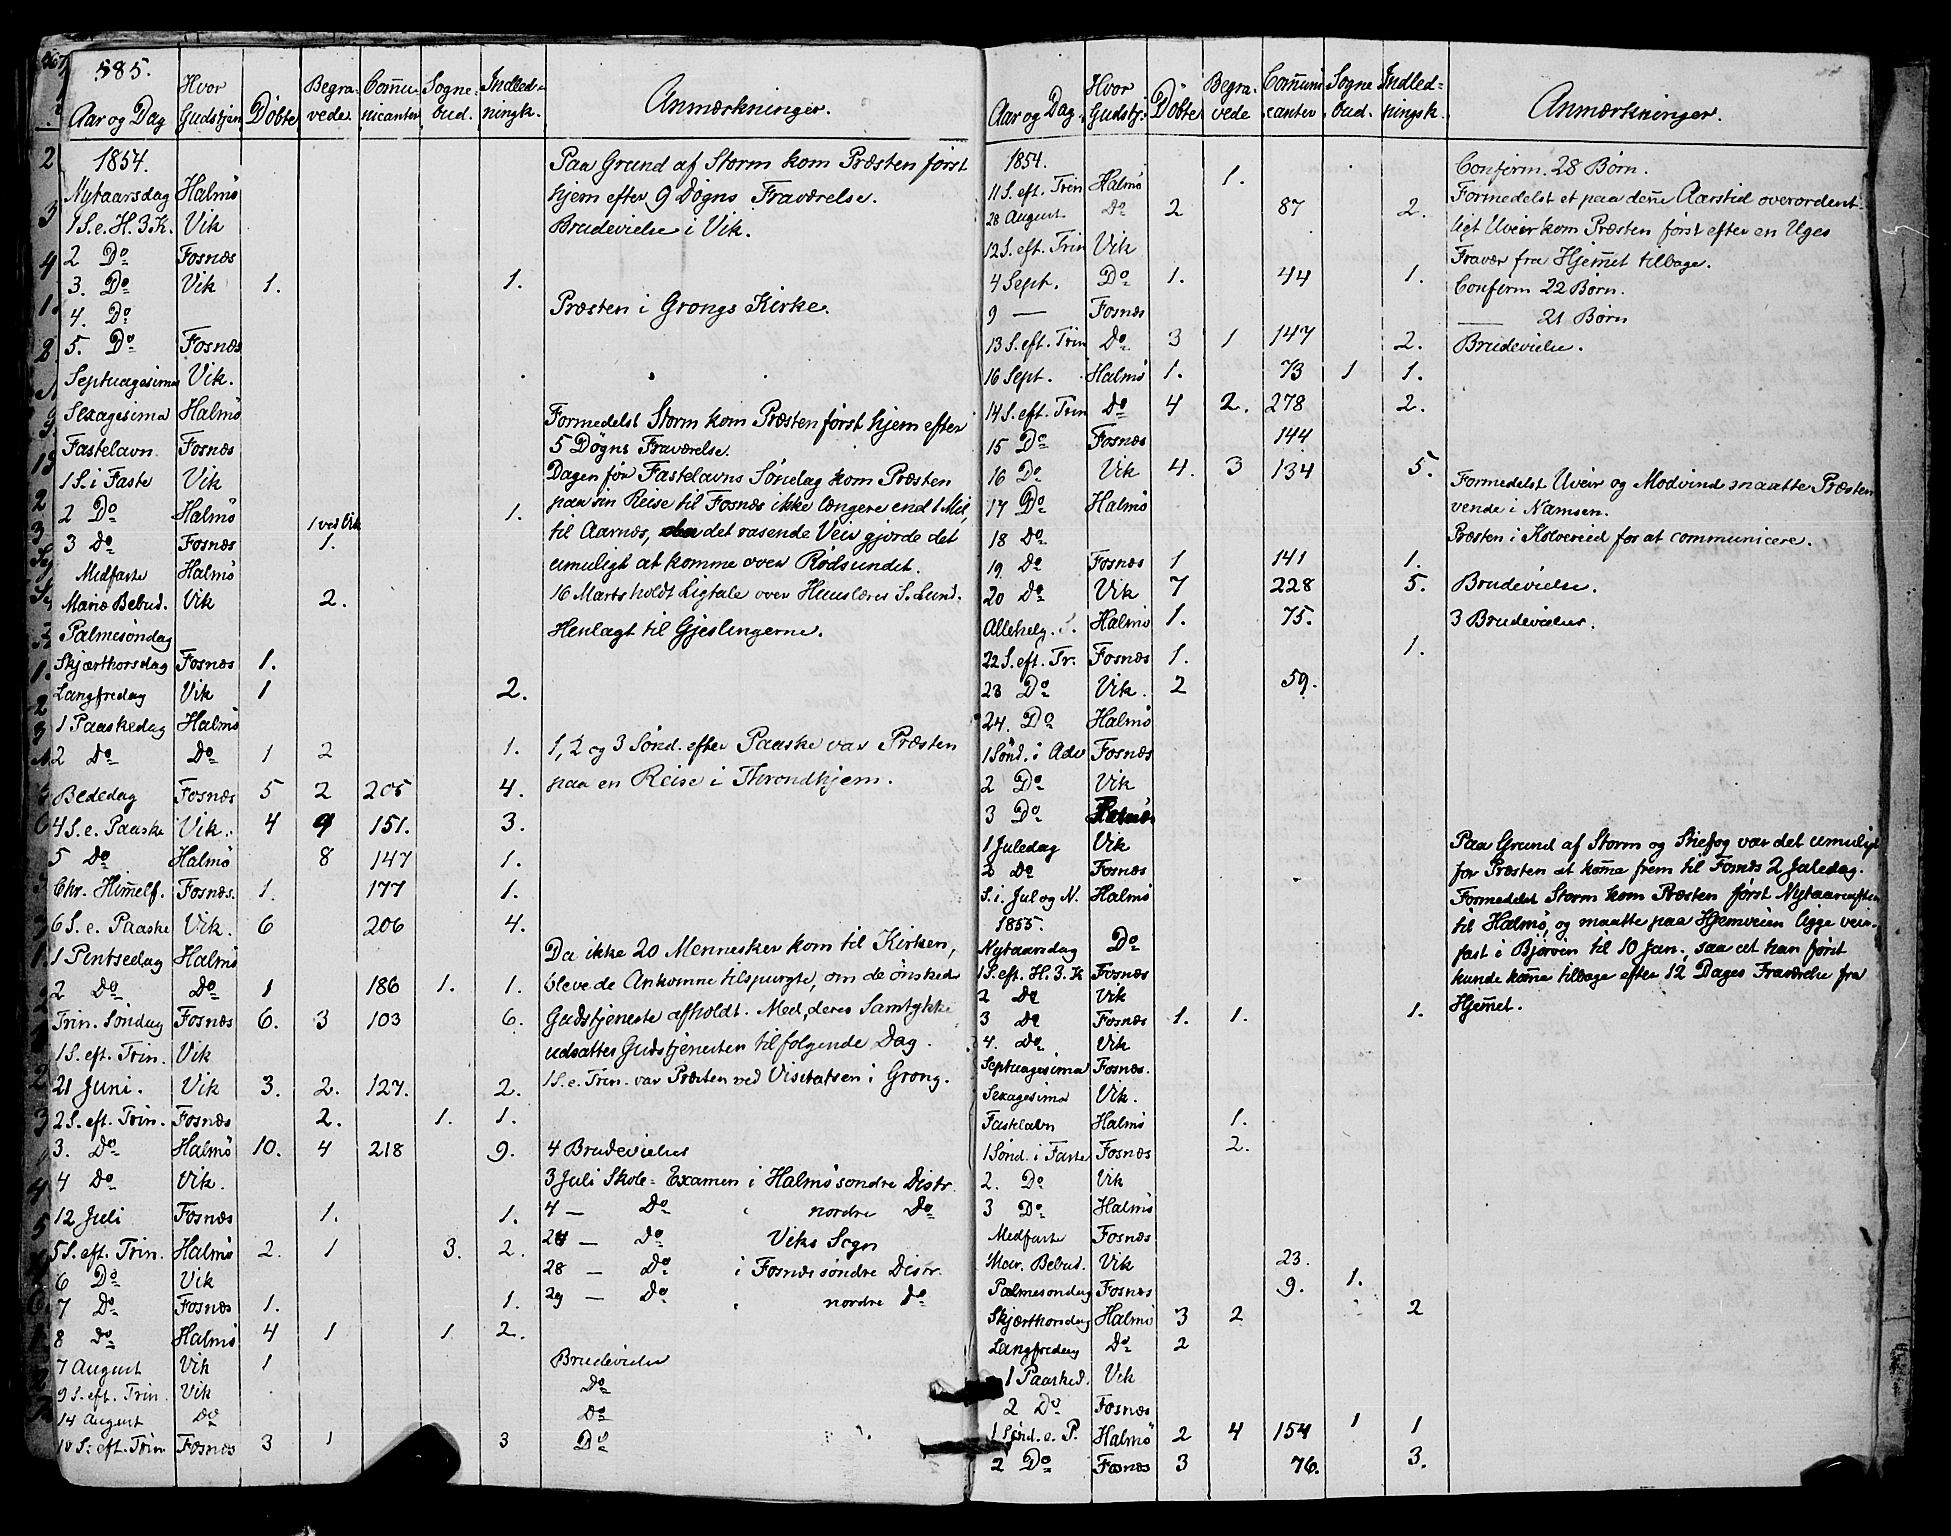 585.
Aar og Dag | Hvor Gudstjen | Döbte | Begra-vede | Comu-nicanter | Sogne-bud. | Indled-ningk. | Anmærkninger.
1854.
Nytaarsdag | Halmö | Paa Grund af Storm kom Præsten först
1 S. e. H. 3 K. | Vik | hjem efter 9 Dögns Fraværelse.
2 Do | Fosnæs | Brudevielse i Vik.
3. Do | Vik | 1. | 1.
4. Do | Præsten i Grongs Kirke.
5. Do | Fosnæs
Septuagesima | Vik.
Sexagesima | Halmö | Formedelst Storm kom Præsten först hjem efter
Fastelavn | Fosnæs | 5 Dögns Fraværelse.
1 S. i Faste | Vik | Dagen för Fastelavns Söndag kom Præsten
2 Do | Halmö | 1 ved Vik | 1. | paa sin Reise til Fosnæs ikke længere end 1 Mil,
3 Do | Fosnæs | 1. | til Aarnæs, det rasende Veir gjorde det
Midfaste | Halmö | umuligt at komme over Rödsundet.
Mariæ Bebud. | Vik | 2. | 16 Marts holdt Ligtale over Huuslærer S. Lund.
Palmesöndag | Henlagt til Gjeslingerne.
Skjærthorsdag | Fosnæs | 1.
Langfredag | Vik | 1 | 2.
1 Paaskedag | Halmö
2 Do | Do | 1 | 2 | 1. | 1, 2 og 3 Sönd. efter Paaske var Præsten
Bededag | Fosnæs | 5 | 2 | 205 | 4. | paa en Reise i Throndhjem.
4 S. e. Paaske | Vik. | 4 | 9 | 151. | 3.
5 Do | Halmö | 8 | 147 | 1.
Chr. Himelf. | Fosnæs. | 1. | 177 | 1.
6 S. e. Paaske | Vik. | 6 | 206 | 4.
1 Pintsedag | Halmö | Da ikke 20 Mennesker kom til Kirken,
2 Do | Do | 1 | 186 | 1. | 1. | bleve de Ankomne tilspurgte, om de önskede
Trin. Söndag | Fosnæs | 6. | 3 | 103 | 6. | Gudstjeneste afholdt. Med deres Samtykke
1 S. eft. Trin. | Vik | udsattes Gudstjenesten til folgende Dag.
21 Juni. | Vik | 3. | 2. | 127. | 2. | 1 S. e. Trin. var Præsten ved Visitatsen i Grong.
2 S. eft. Trin. | Fosnæs | 2. | 1. | 1.
3. Do | Halmö | 10. | 4 | 218 | 9. | 4 Brudevielser
4 Do | Vik. | 3 Juli Skole-Examen i Halmö söndre Distr.
12 Juli | Fosnæs | 1. | 1. | 4 — Do nordre Do
5 S. eft. Trin. | Halmö | 2. | 1 | 3. | 2. | Do Viks Sogn
6 Do | Vik | 28 — Do i Fosnæs söndre Distr.
7 Do | Fosnæs | 1. | 1. | 29 — Do nordre Do
8 Do | Halmö | 4 | 1 | 1 | 2.
7 August | Vik | 1 | Brudevielse
9 S. eft. Trin. | Vik | Do
14 August | Do | Do
10 S. eft. Trin | Fosnæs | 3 | 1 | 3 | Do
Aar og Dag. | Hvor Gudstj. | Döbte | Begra-vede | Comuni-canter | Sogne-bud. | Indled-ningsk. | Anmærkninger.
1854. | Confirm. 28 Börn.
11 S. eft. Trin | Halmö | 1. | Formedelst et paa dene Aarstid overordent-
28 August | Do | 2 | 87 | 2. | ligt Uveir kom Præsten först efter en Uges
12 S. eft. Trin | Vik | Fravær fra Hjemet tilbage.
4 Sept. | Do | 1. | 44 | 1. | Confirm 22 Börn.
9 — | Fosnæs | — 21 Börn
13 S. eft. Trin | Do | 3 | 1 | 147 | 2. | Brudevielse.
16 Sept. | Halmö | 1. | 73 | 1 | 1.
14 S. eft. Trin | Do | 4 | 2. | 278 | 2.
15 Do | Fosnæs | 144
16 Do | Vik | 4. | 3 | 134 | 5. | Formedelst Uveir og Modvind maatte Præsten
17 Do | Halmö | vende i Namsen.
18 Do | Præsten i Kolvereid for at communicere.
19. Do | Fosnæs | 1 | 141 | 1.
20 Do | Vik | 7 | 228 | 5. | Brudevielse.
Allehelg. S. | Halmö | 1. | 75. | 3 Brudevielser.
22 S. eft. Tr. | Fosnæs | 1. | 1.
23 Do | Vik. | 2 | 59.
24. Do | Halmö
1 Sönd. i Adv | Fosnæs
2 Do | Vik
3 Do
1 Juledag | Vik | Paa Grund af Storm og Snefog var det umuligt
2 Do | Fosnæs | for Præsten at kome frem til Fosnæs 2 Juledag.
S. i. Jul og N. | Halmö | Formedelst Storm kom Præsten först Nytaarsaften
1855. | til Halmö, og maatte paa Hjemveien ligge veir-
Nytaarsdag | Do | fast i Björöen til 10 Jan., saa at han först
1 S. eft. H. 3. K | Fosnæs | kunde kome tilbage efter 12 Dages Fraværelse fra
2 Do | Vik | Hjemet.
3 Do | Fosnæs | 1. | 1. | 1.
4. Do | Vik
Septuagesima | Fosnæs.
Sexagesima | Vik.
Fastelavn | Halmö | 1.
1 Sönd. i Faste | Fosnæs | 2.
2. Do | Vik
3 Do | Halmö
Midfaste | Fosnæs
Mar. Bebud. | Vik | 23.
Palmesöndag | Fosnæs | 9. | 1.
Skjærthorsdag | Halmö | 3 | 2 | 2
Langfredag | Do | 2
1 Paasked. | Vik
2 Do | Fosnæs
1 Sönd. e. P. | Halmö | 2 | 4 | 154 | 1 | 1
2 Do | Fosnæs | 3 | 76. | 3.